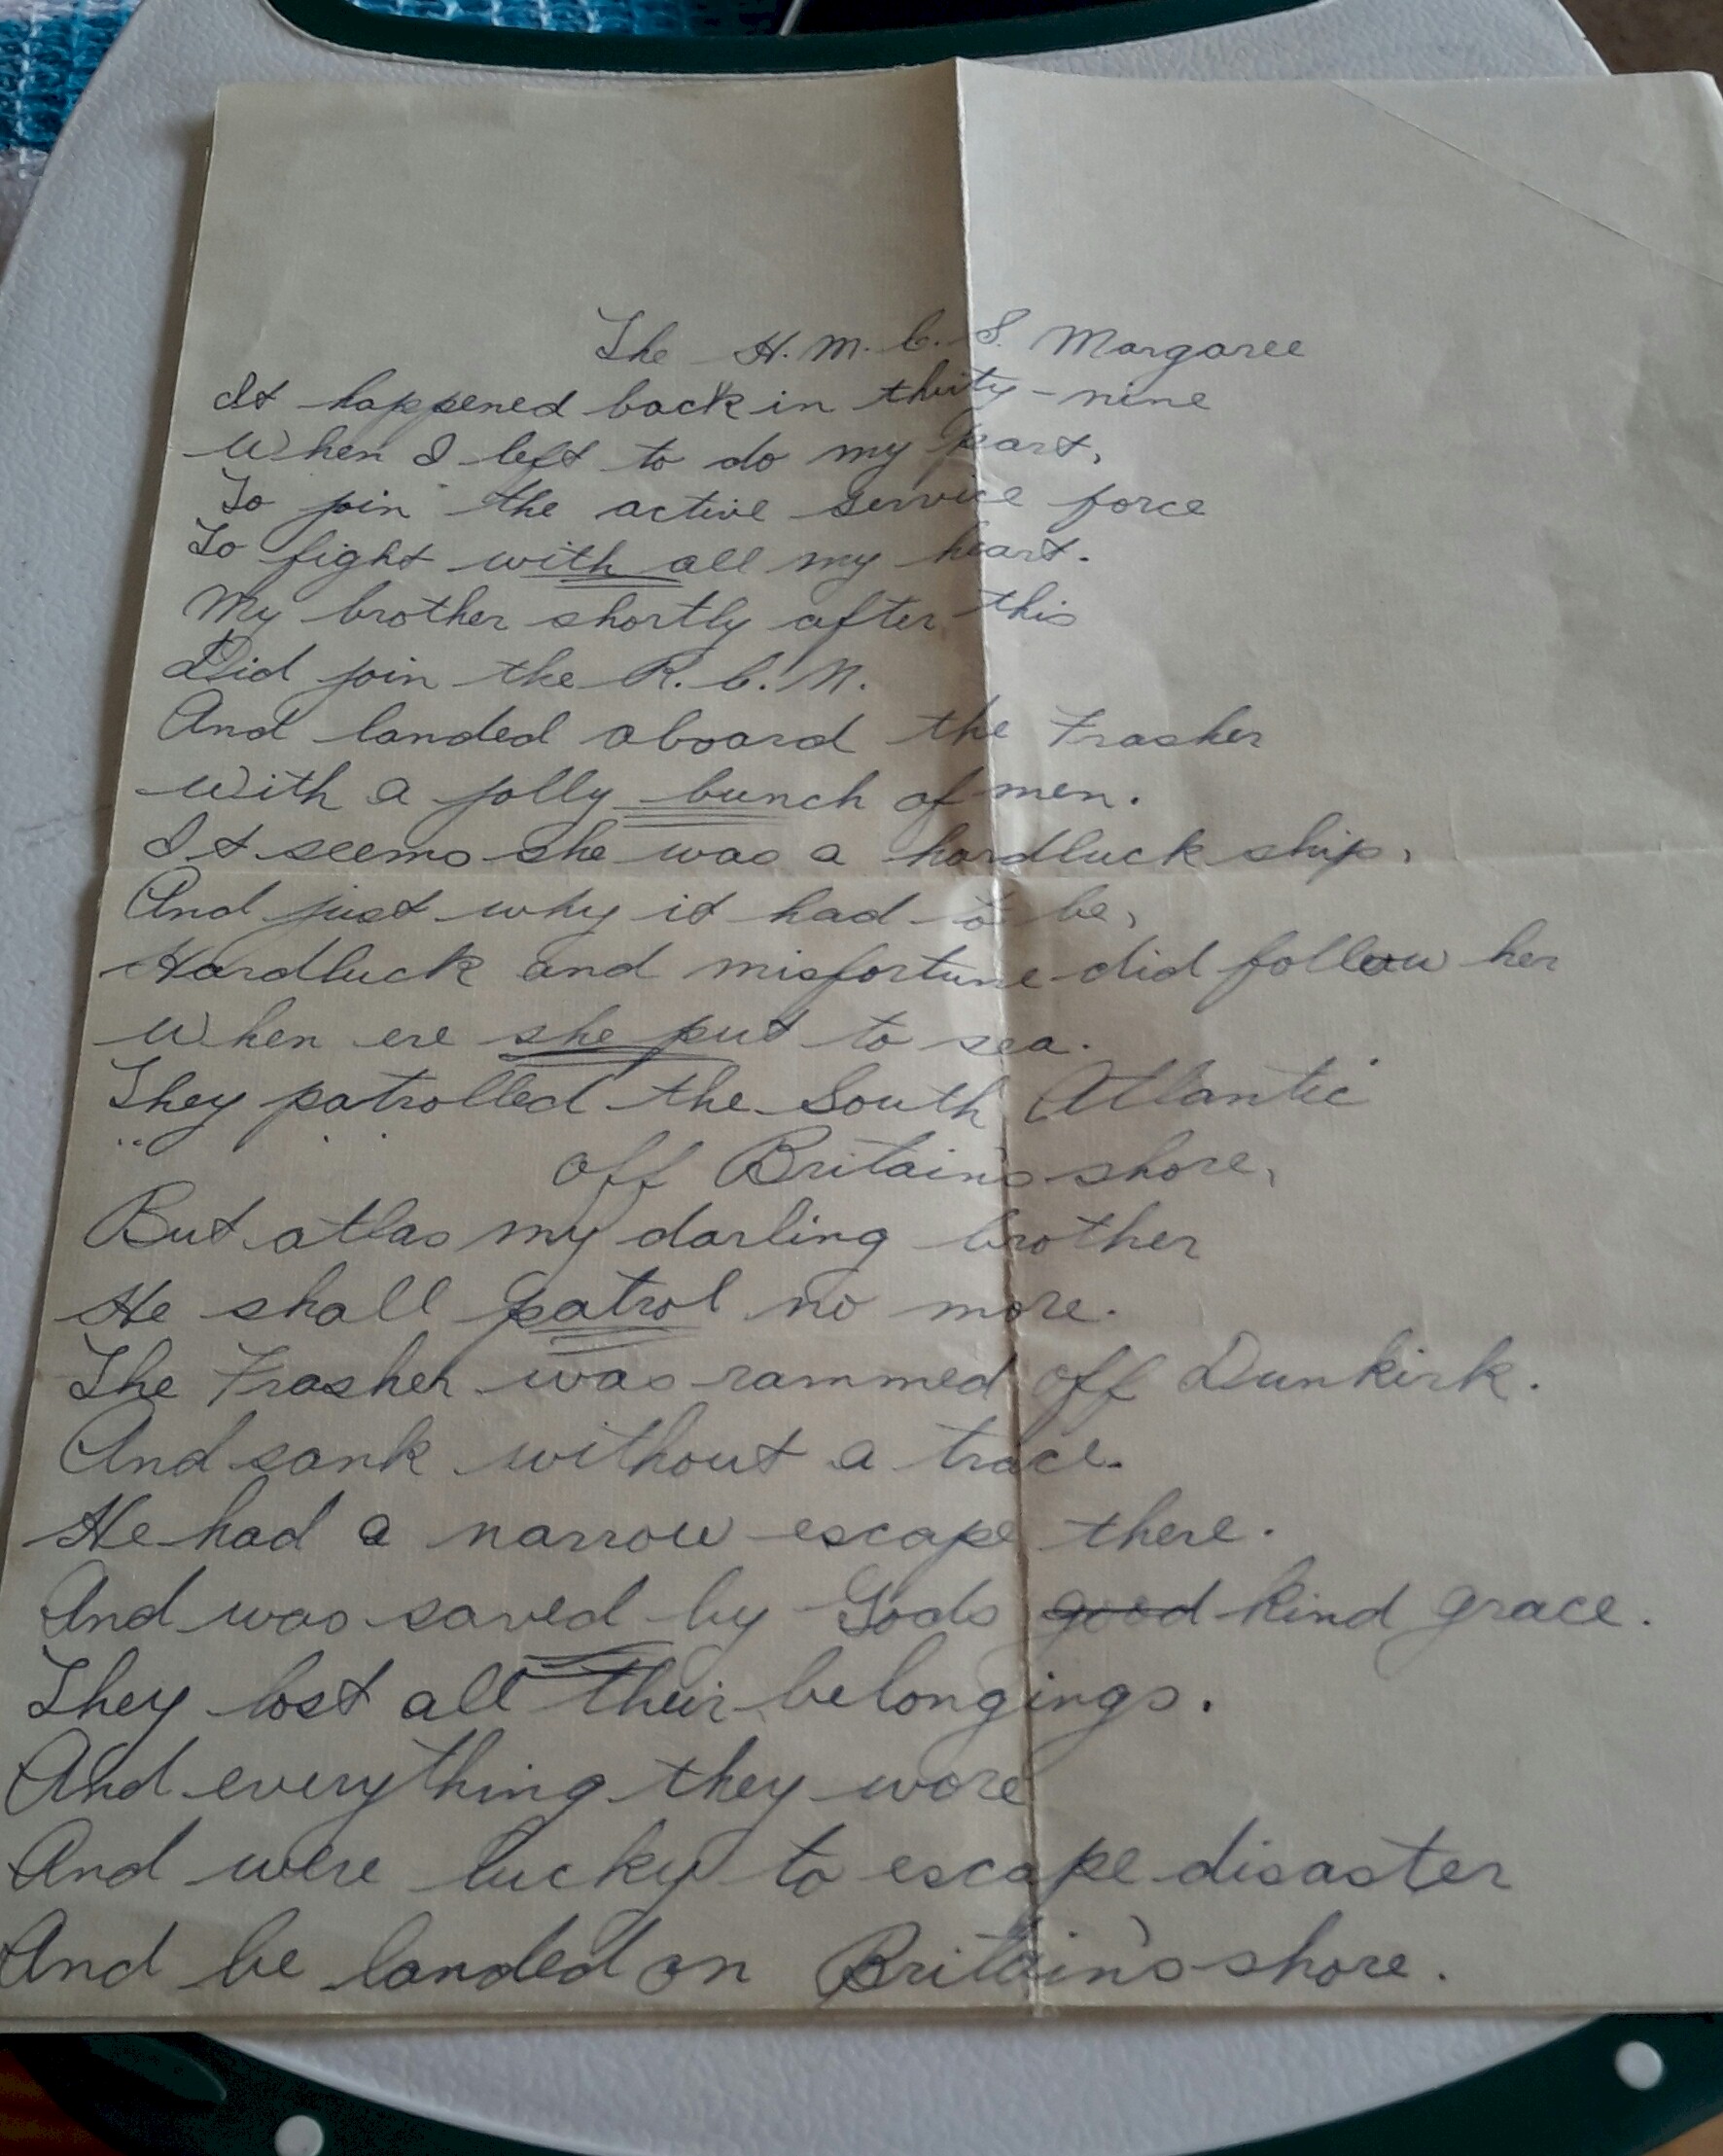 The H.M.C.S. Margaree
It happened back in thirty-nine
When I left to do my part,
To join the active service force
To fight with all my heart.
My brother shortly after this
Did join the R.C.N.
And landed aboard the Frasher
With a jolly bunch of men.
It seems she was a hardluck ship,
And just why it had to be,
Hardluck and misfortune did follow her
When ere she put to sea.
They patrolled the South Atlantic
" off Britain's shore,
But atlas my darling brother
He shall patrol no more.
The Frasher was rammed off Dunkirk.
And sank without a trace.
He had a narrow escape there.
And was saved by Gods good kind grace.
They lost all their belongings.
And everything they wore
And were lucky to escape disaster
And be landed on Britain's shore.